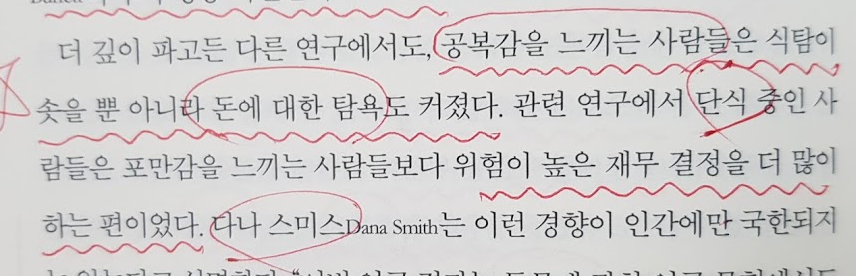 더 깊이 파고든 다른 연구에서도, 공복감을 느끼는 사람들은 식탐이
솟을 뿐 아니라 돈에 대한 탐욕도 커졌다. 관련 연구에서 단식 중인 사
람들은 포만감을 느끼는 사람들보다 위험이 높은 재무 결정을 더 많이
하는 편이었다. 다나 스미스Dana Smith는 이런 경향이 인간에만 국한되지